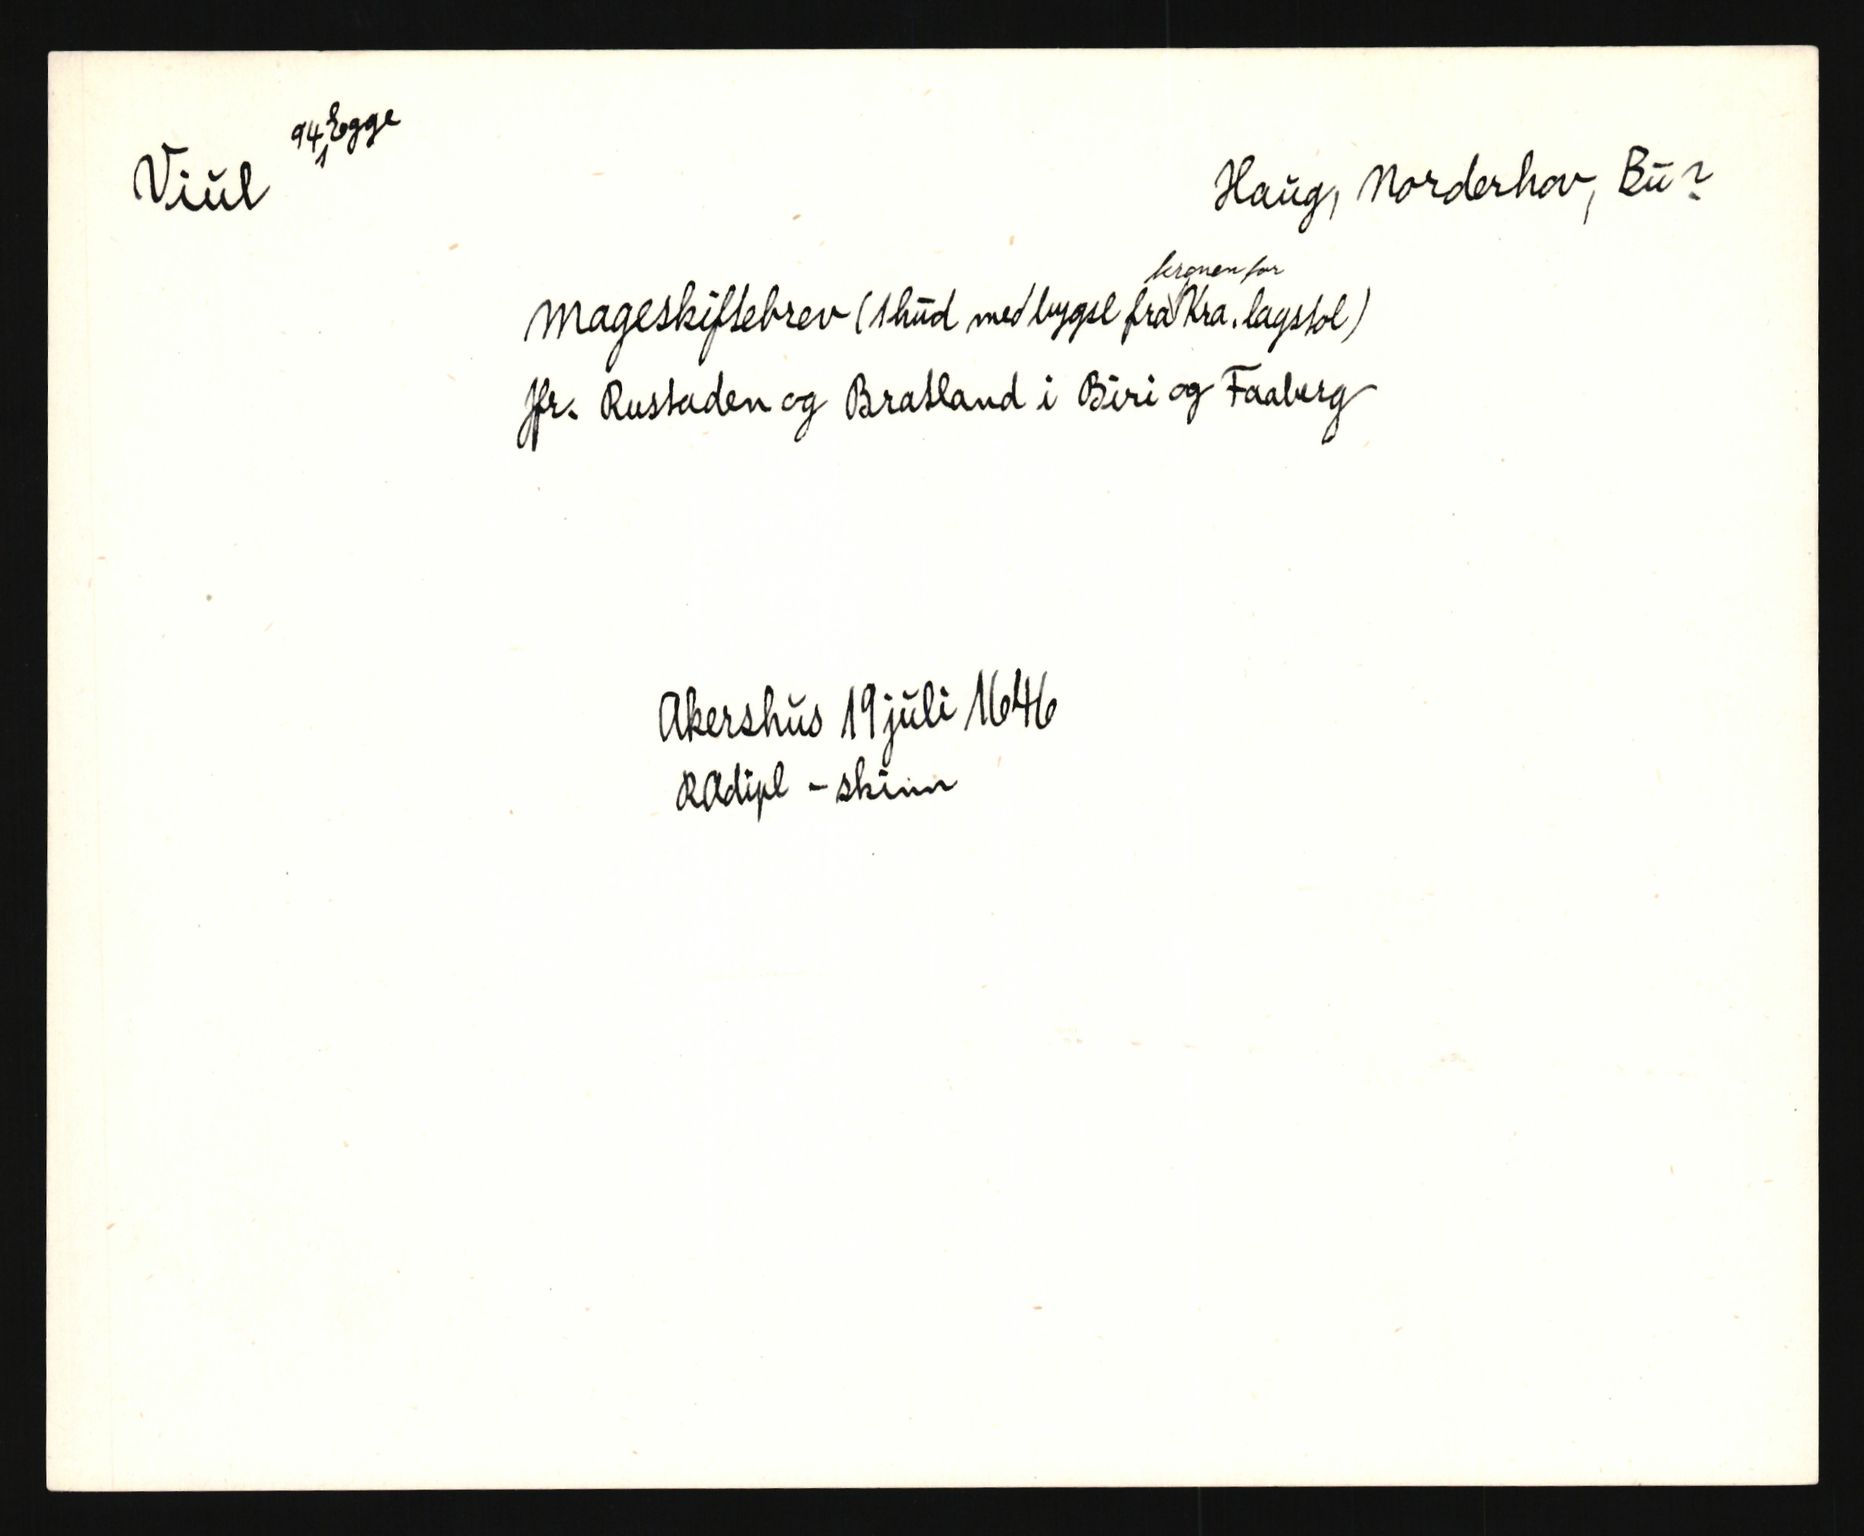 Viul 94,1 Egge
Haug, Norderhov, Bu?
Mageskiftebrev (1 hud med bygsl fra kronen for Kra. lagstol)
Jfr. Rustaden og Bratland i Biri og Faaberg
Akershus 19 juli 1646
RAdipl - skinn